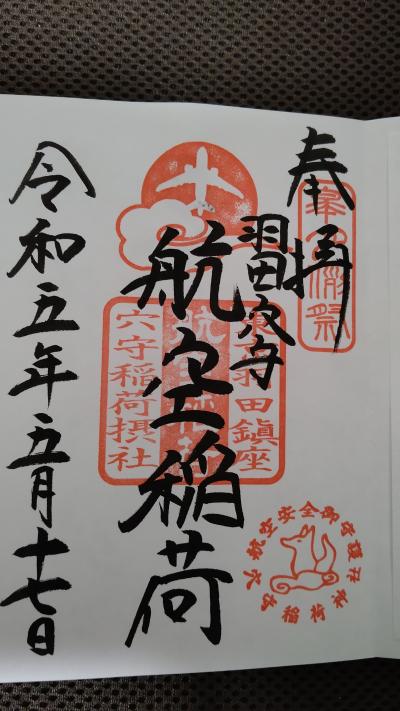 奉拝
羽田穴守
航空稲荷
令和五年五月十七日
東京羽田鎮座
航空稲荷
穴守稲荷摂社
航空安全御守護
穴守稲荷神社